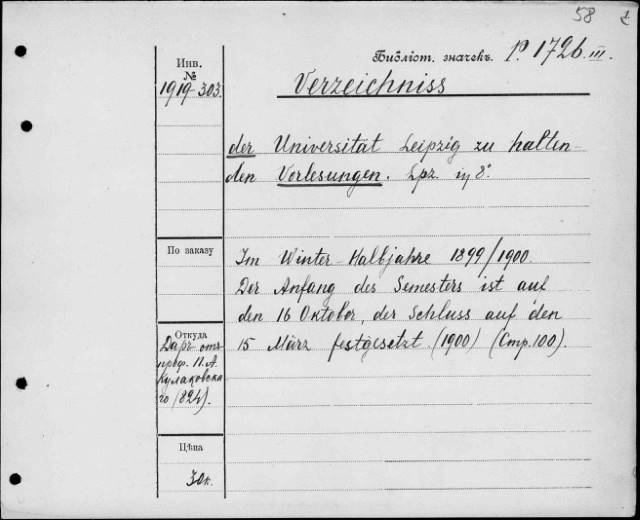 58
Библіот. значекъ. P. 1726. III.
Инв.
№
1919-303.
Verzeichniss
der Universität Leipzig zu halten-
den Vorlesungen. Lpz. in 8°.
По заказу
Im Winter-Halbjahre 1899/1900.
Der Anfang des Semesters ist auf
den 16 Oktober, der Schluss auf den
15 März festgesetzt. (1900) (Стр. 100).
Откуда
Даръ отъ
проф. П. А.
Кулаковска-
го (824).
Цѣна
30к.